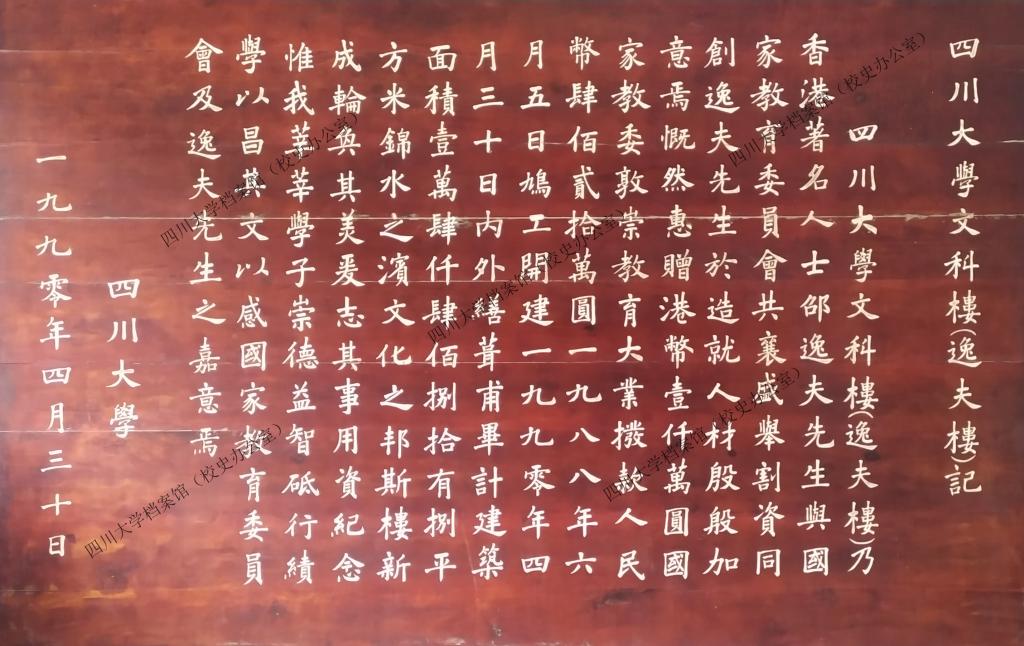 四川大學文科樓(逸夫樓)記
四川大學文科樓(逸夫樓)乃
香港著名人士邵逸夫先生與國
家教育委員會共襄盛舉割資同
創逸夫先生於造就人材殷殷加
意焉慨然惠贈港幣壹仟萬圓國
家教委敦崇教育大業撥款人民
幣肆佰貳拾萬圓一九八八年六
月五日鳩工開建一九九零年四
月三十日内外繕葺甫畢計建築
面積壹萬肆仟肆佰捌拾有捌平
方米錦水之濱文化之邦斯樓新
成輪奐其美爰志其事用資紀念
惟我莘莘學子崇德益智砥行績
學以昌其文以感國家教育委員
會及逸夫先生之嘉意焉
四川大學
一九九零年四月三十日
四川大学档案馆（校史办公室）
四川大学档案馆（校史办公室）
四川大学档案馆（校史办公室）
四川大学档案馆（校史办公室）
四川大学档案馆（校史办公室）